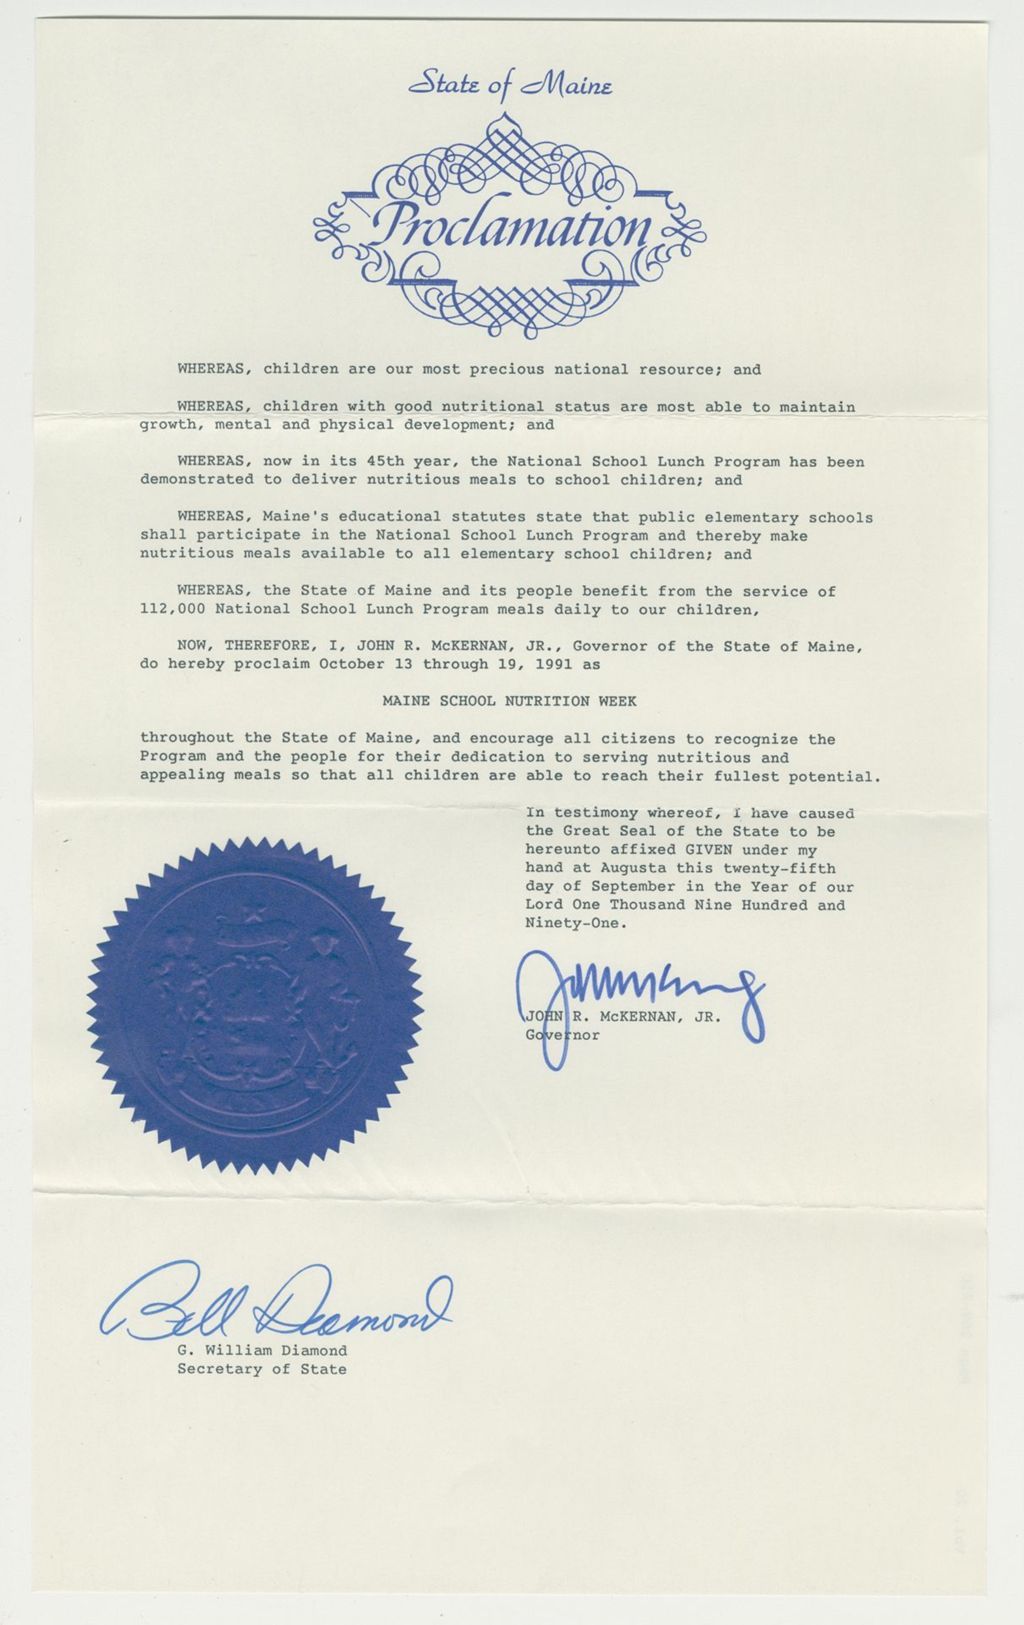 State of Maine
Proclamation
WHEREAS, children are our most precious national resource; and
WHEREAS, children with good nutritional status are most able to maintain
growth, mental and physical development; and
WHEREAS, now in its 45th year, the National School Lunch Program has been
demonstrated to deliver nutritious meals to school children; and
WHEREAS, Maine's educational statutes state that public elementary schools
shall participate in the National School Lunch Program and thereby make
nutritious meals available to all elementary school children; and
WHEREAS, the State of Maine and its people benefit from the service of
112,000 National School Lunch Program meals daily to our children,
NOW, THEREFORE, I, JOHN R. McKERNAN, JR., Governor of the State of Maine,
do hereby proclaim October 13 through 19, 1991 as
MAINE SCHOOL NUTRITION WEEK
throughout the State of Maine, and encourage all citizens to recognize the
Program and the people for their dedication to serving nutritious and
appealing meals so that all children are able to reach their fullest potential.
In testimony whereof, I have caused
the Great Seal of the State to be
hereunto affixed GIVEN under my
hand at Augusta this twenty-fifth
day of September in the Year of our
Lord One Thousand Nine Hundred and
Ninety-One.
JOHN R. McKERNAN, JR.
Governor
Bill Diamond
G. William Diamond
Secretary of State